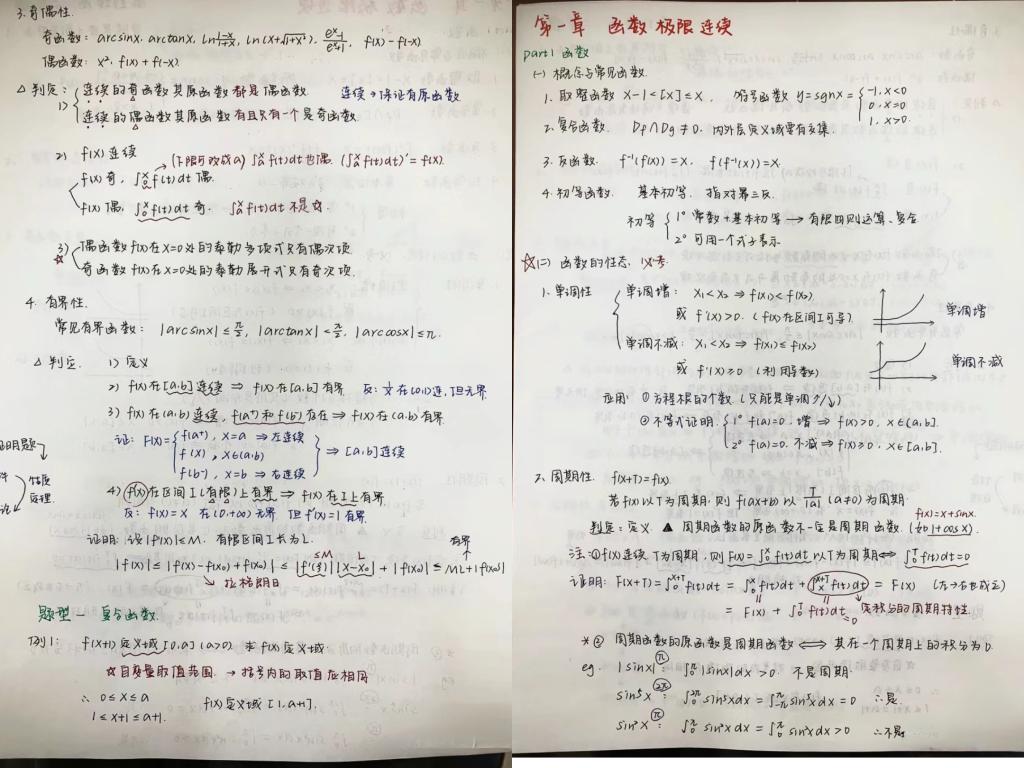 第一章 函数 极限 连续
part1 函数
(一) 概念与常见函数.
1. 取整函数 x-1<[x]≤x, 符号函数 y=sgnx={-1, x<0
0, x=0
1, x>0.
2. 复合函数. Df∩Dg≠∅. 内外层定义域要有交集.
3. 反函数. f⁻¹(f(x))=x. f(f⁻¹(x))=x.
4. 初等函数. 基本初等. 指对幂三反.
初等 {1° 常数+基本初等 → 有限四则运算、复合
2° 可用一个式子表示.
☆(二) 函数的性态.
1. 单调性 {单调增: x₁<x₂ ⇒ f(x₁)<f(x₂)
或 f'(x)>0. (f(x)在区间I可导)
单调增
单调不减: x₁<x₂ ⇒ f(x₁)≤f(x₂)
或 f'(x)≥0 (利用导数)
单调不减
应用: ① 方程根的个数 (只能是单调↗/↘)
② 不等式证明. {1° f(a)=0. 增 ⇒ f(x)>0, x∈(a,b].
2° f(a)=0. 不减 ⇒ f(x)≥0, x∈[a,b].
2. 周期性. f(x+T)=f(x).
若f(x)以T为周期, 则 f(ax+b) 以 T/|a| (a≠0)为周期.
f(x)=x+sinx.
判定: 定义. ▲ 周期函数的原函数不一定是周期函数. (如 1+cosx).
注: ① f(x)连续 T为周期, 则 F(x)=∫₀ˣf(t)dt 以T为周期 ⇔ ∫₀ᵀf(t)dt=0
证明: F(x+T)=∫₀ˣ⁺ᵀf(t)dt=∫₀ˣf(t)dt+∫ₓˣ⁺ᵀf(t)dt = F(x) (左→右也成立)
= F(x)+∫₀ᵀf(t)dt 定积分的周期特性.
=0
* ② 周期函数的原函数是周期函数 ⇔ 其在一个周期上的积分为0.
eg. |sinx| (π): ∫₀^π|sinx|dx>0. 不是周期.
sin⁵x (2π): ∫₀^2π sin⁵xdx=∫_-π^π sin⁵xdx=0 ∴是.
sin²x (π): ∫₀^π sin²xdx=∫₀^π sin²xdx>0 ∴不是.
3. 奇偶性.
奇函数: arcsinx, arctanx, ln(1-x)/(1+x), ln(x+√(1+x²)), (eˣ-1)/(eˣ+1), f(x)-f(-x)
偶函数: x², f(x)+f(-x)
△ 判定: 1) {连续的奇函数其原函数都是偶函数. 连续→保证有原函数
连续的偶函数其原函数有且只有一个是奇函数.
2) f(x)连续
(下限可改成a) ∫ₐˣf(t)dt 也偶. (∫ₐˣf(t)dt)'=f(x).
f(x)奇, ∫₀ˣf(t)dt 偶.
f(x)偶, ∫₀ˣf(t)dt 奇. ∫ₐˣf(t)dt 不是奇.
☆ 3) 偶函数f(x)在x=0处的泰勒多项式只有偶次项.
奇函数f(x)在x=0处的泰勒展开式只有奇次项.
4. 有界性.
常见有界函数: |arcsinx|≤π/2, |arctanx|<π/2, |arccosx|≤π.
△ 判定. 1) 定义
2) f(x)在[a,b]连续 ⇒ f(x)在[a,b]有界 反: 1/x 在(0,1)连, 但无界.
3) f(x)在(a,b)连续, f(a⁺)和f(b⁻)存在 ⇒ f(x)在(a,b)有界.
证: F(x)={f(a⁺), x=a ⇒ 左连续
f(x), x∈(a,b)
f(b⁻), x=b ⇒ 右连续} ⇒ [a,b]连续
证明题
性质
定理
4) f'(x)在区间I(有限)上有界 ⇒ f(x)在I上有界
反: f(x)=x 在(0,+∞)无界 但f'(x)=1有界
证明: 设|f'(x)|≤M. 有限区间I长为L. 有界
|f(x)|≤|f(x)-f(x₀)+f(x₀)|≤|f'(ξ)||x-x₀|+|f(x₀)|≤ML+|f(x₀)|
≤M L
拉格朗日
题型一 复合函数.
例1: f(x+1)定义域[0,a] (a>0) 求f(x)定义域.
☆自变量取值范围. → 括号内的取值应相同
∴ 0≤x≤a f(x)定义域 [1,a+1].
1≤x+1≤a+1.